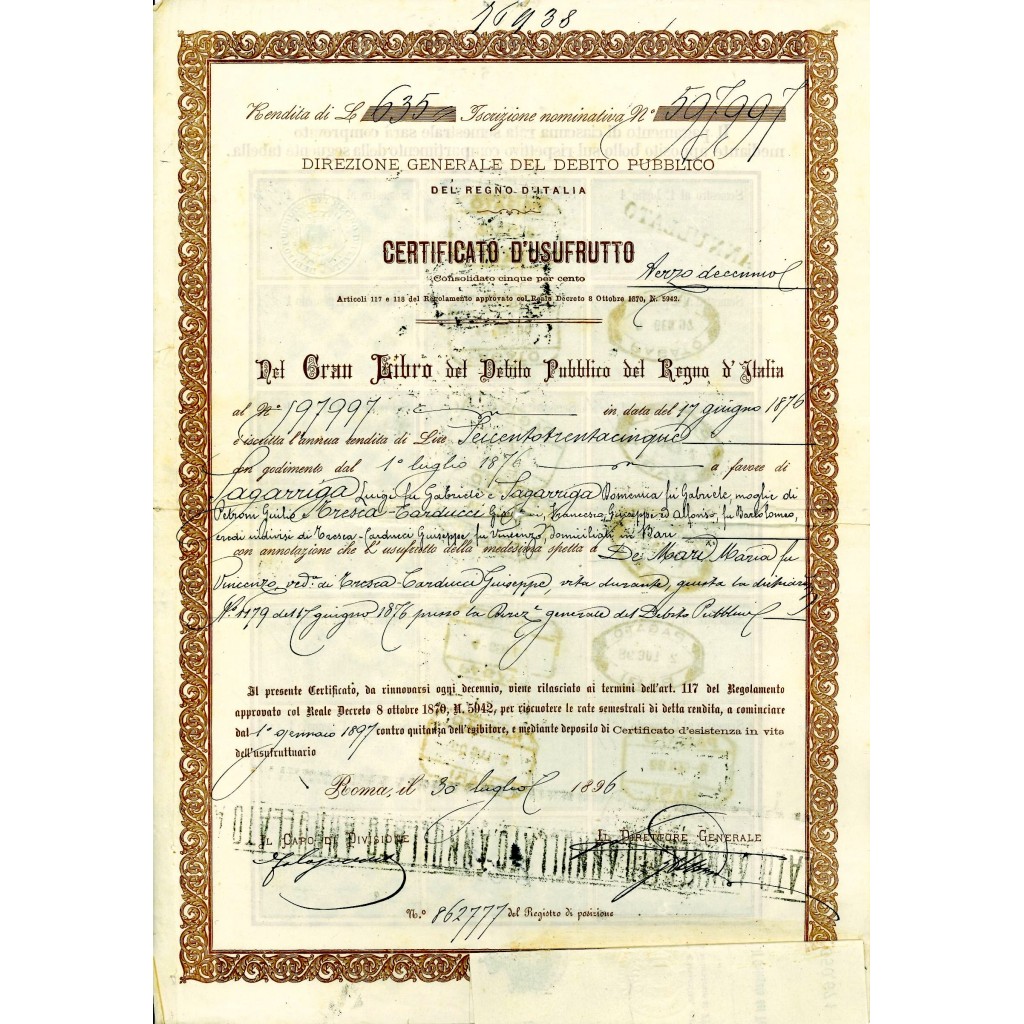 16938
Rendita di L 635 Iscrizione nominativa N° 597997
DIREZIONE GENERALE DEL DEBITO PUBBLICO
DEL REGNO D'ITALIA
CERTIFICATO D'USUFRUTTO
Consolidato cinque per cento
Terzo decennio
Articoli 117 e 118 del Regolamento approvato col Reale Decreto 8 Ottobre 1870, N. 5942.
Nel Gran Libro del Debito Pubblico del Regno d'Italia
al N° 597997 in data del 17 giugno 1876
è iscritta l'annua rendita di Lire Seicentotrentacinque
con godimento dal 1° luglio 1876 a favore di
Sagarriga Luigi fu Gabriele e Sagarriga Domenica fu Gabriele, moglie di
Petroni Giulio e Tresca-Carducci Francesco, Giuseppe ed Alfonso, fu Bartolomeo,
eredi indivisi di Tresca-Carducci Giuseppe fu Vincenzo, domiciliati in Bari
con annotazione che l'usufrutto della medesima spetta a De Mari Maria fu
Vincenzo, ved.a di Tresca-Carducci Giuseppe, vita durante, giusta la
del 17 giugno 1876 presso la Direz.e generale del Debito Pubblico
Il presente Certificato, da rinnovarsi ogni decennio, viene rilasciato ai termini dell'art. 117 del Regolamento
approvato col Reale Decreto 8 ottobre 1870, N. 5942, per riscuotere le rate semestrali di detta rendita, a cominciare
dal 1° gennaio 1897 contro quitanza dell'esibitore, e mediante deposito di Certificato d'esistenza in vita
dell'usufruttuario
Roma, il 30 luglio 1896
IL CAPO DI DIVISIONE IL DIRETTORE GENERALE
ANNULLATO ANNULLATO ANNULLATO
N.° 862777 del Registro di posizione